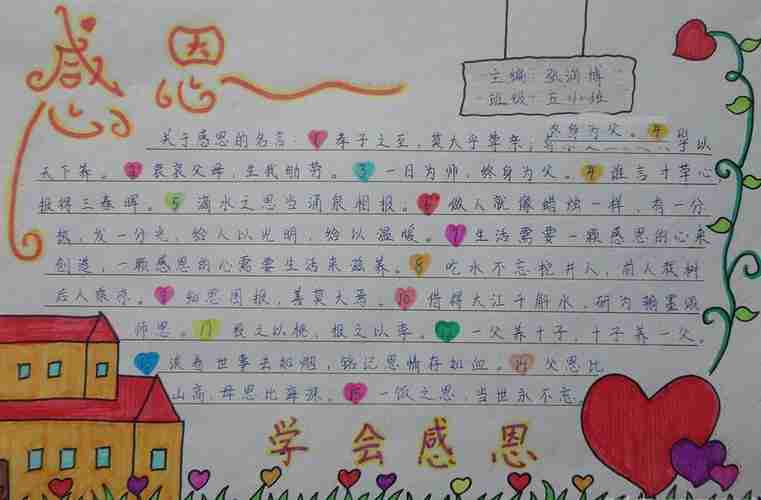 感恩
主编：张润博
班级：五小班
终身为父。4
关于感恩的名言：1 孝子之至，莫大乎尊亲，以
天下养。2 哀哀父母，生我劬劳。3 一日为师，终身为父。4 谁言寸草心，
报得三春晖。5 滴水之恩当涌泉相报。6 做人就像蜡烛一样，有一分
热，发一分光，给人以光明，给以温暖。7 生活需要一颗感恩的心来
创造，一颗感恩的心需要生活来滋养。8 吃水不忘挖井人，前人栽树
后人乘凉。9 知恩图报，善莫大焉。10 借得大江千斛水，研为翰墨颂
师恩。11 投之以桃，报之以李。12 一父养十子，十子养一父。
13 淡看世事去如烟，铭记恩情存如血。14 父恩比
山高，母恩比海深。15 一饭之恩，当世永不忘。
学会感恩